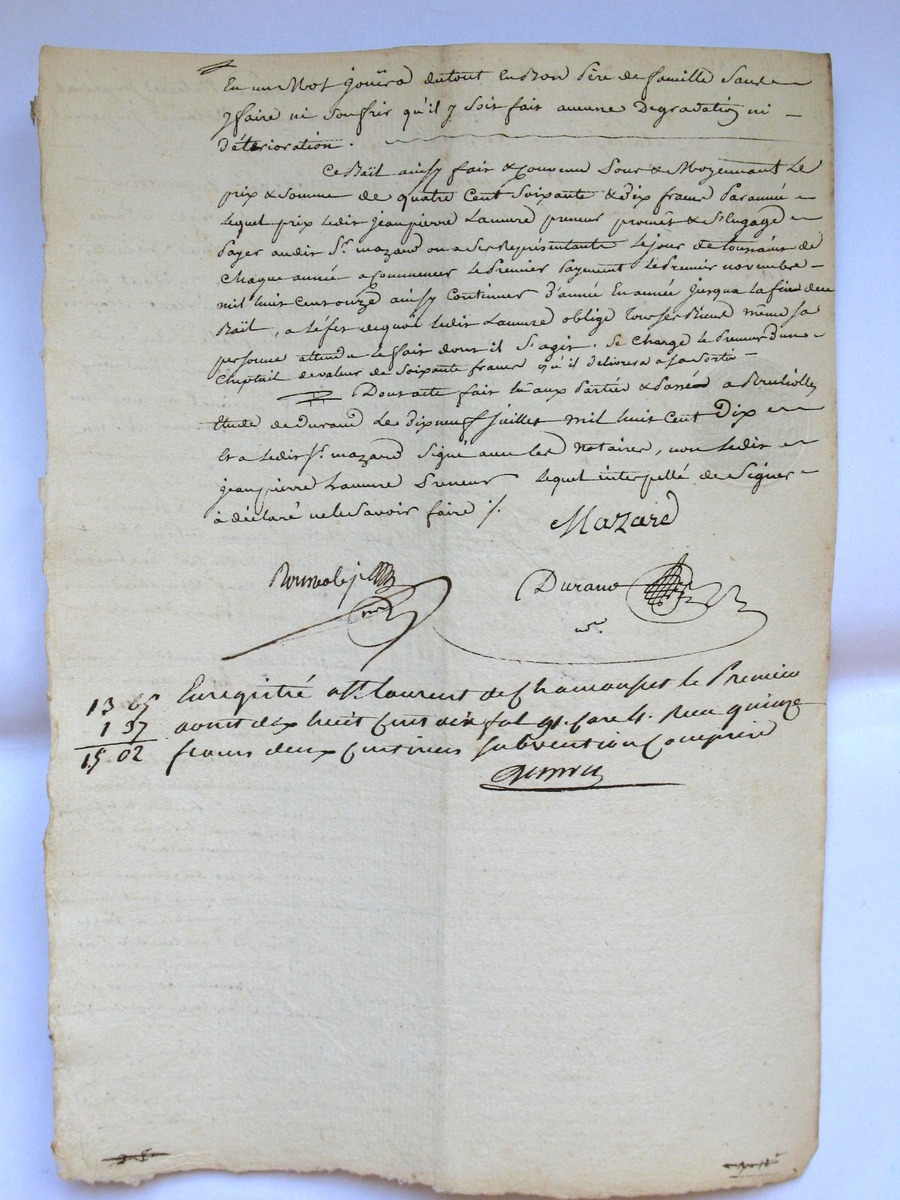 En un Mot joüira dutout En Bon Père de famille Sans
y faire ni Souffrir qu'il y Soit fait aucune Degradatiõn ni
Détérioration.
Ce Baïl ainsy fait & Convenu Pour & Moyennant Le
prix & Somme de quatre Cent Soixante & Dix francs Par année
Lequel prix Ledit Jeanpierre Lameure preneur promet & S'Engage
Payer audit Sr. Mazard ou a Ses Représentants Le jour de toussaint de
Chaque année a Commencer Le Premier Payment Le Premier novembre
mil huit Cent onze ainsy Continuer D'année En année jusqua la fin du
Baïl, a L'éfet de quoi Ledit oblige tous Ses Biens même Sa
personne attendu Le fait dont il S'agit. Se Charge Le Preneur D'un
Cheptail de valeur de Soixante francs qu'il délivrera a Sa Sortie
Dont acte fait Lu aux Parties & Passé a
Etude de Durand Le Dixneuf Juillet mil huit Cent Dix
Et a Ledit Sr. Mazard Signé avec Les Notaires, non Ledit
Jeanpierre Preneur Lequel interpellé de Signer
à déclaré ne le Savoir faire ./.
Mazard
Durand
nre
13 65 Enregistré a St. Laurent de Chamousset le Premier
1 37 aoust dix huit Cent dix fol Reçu quinze
15 02 francs deux Centimes Subvention Comprise